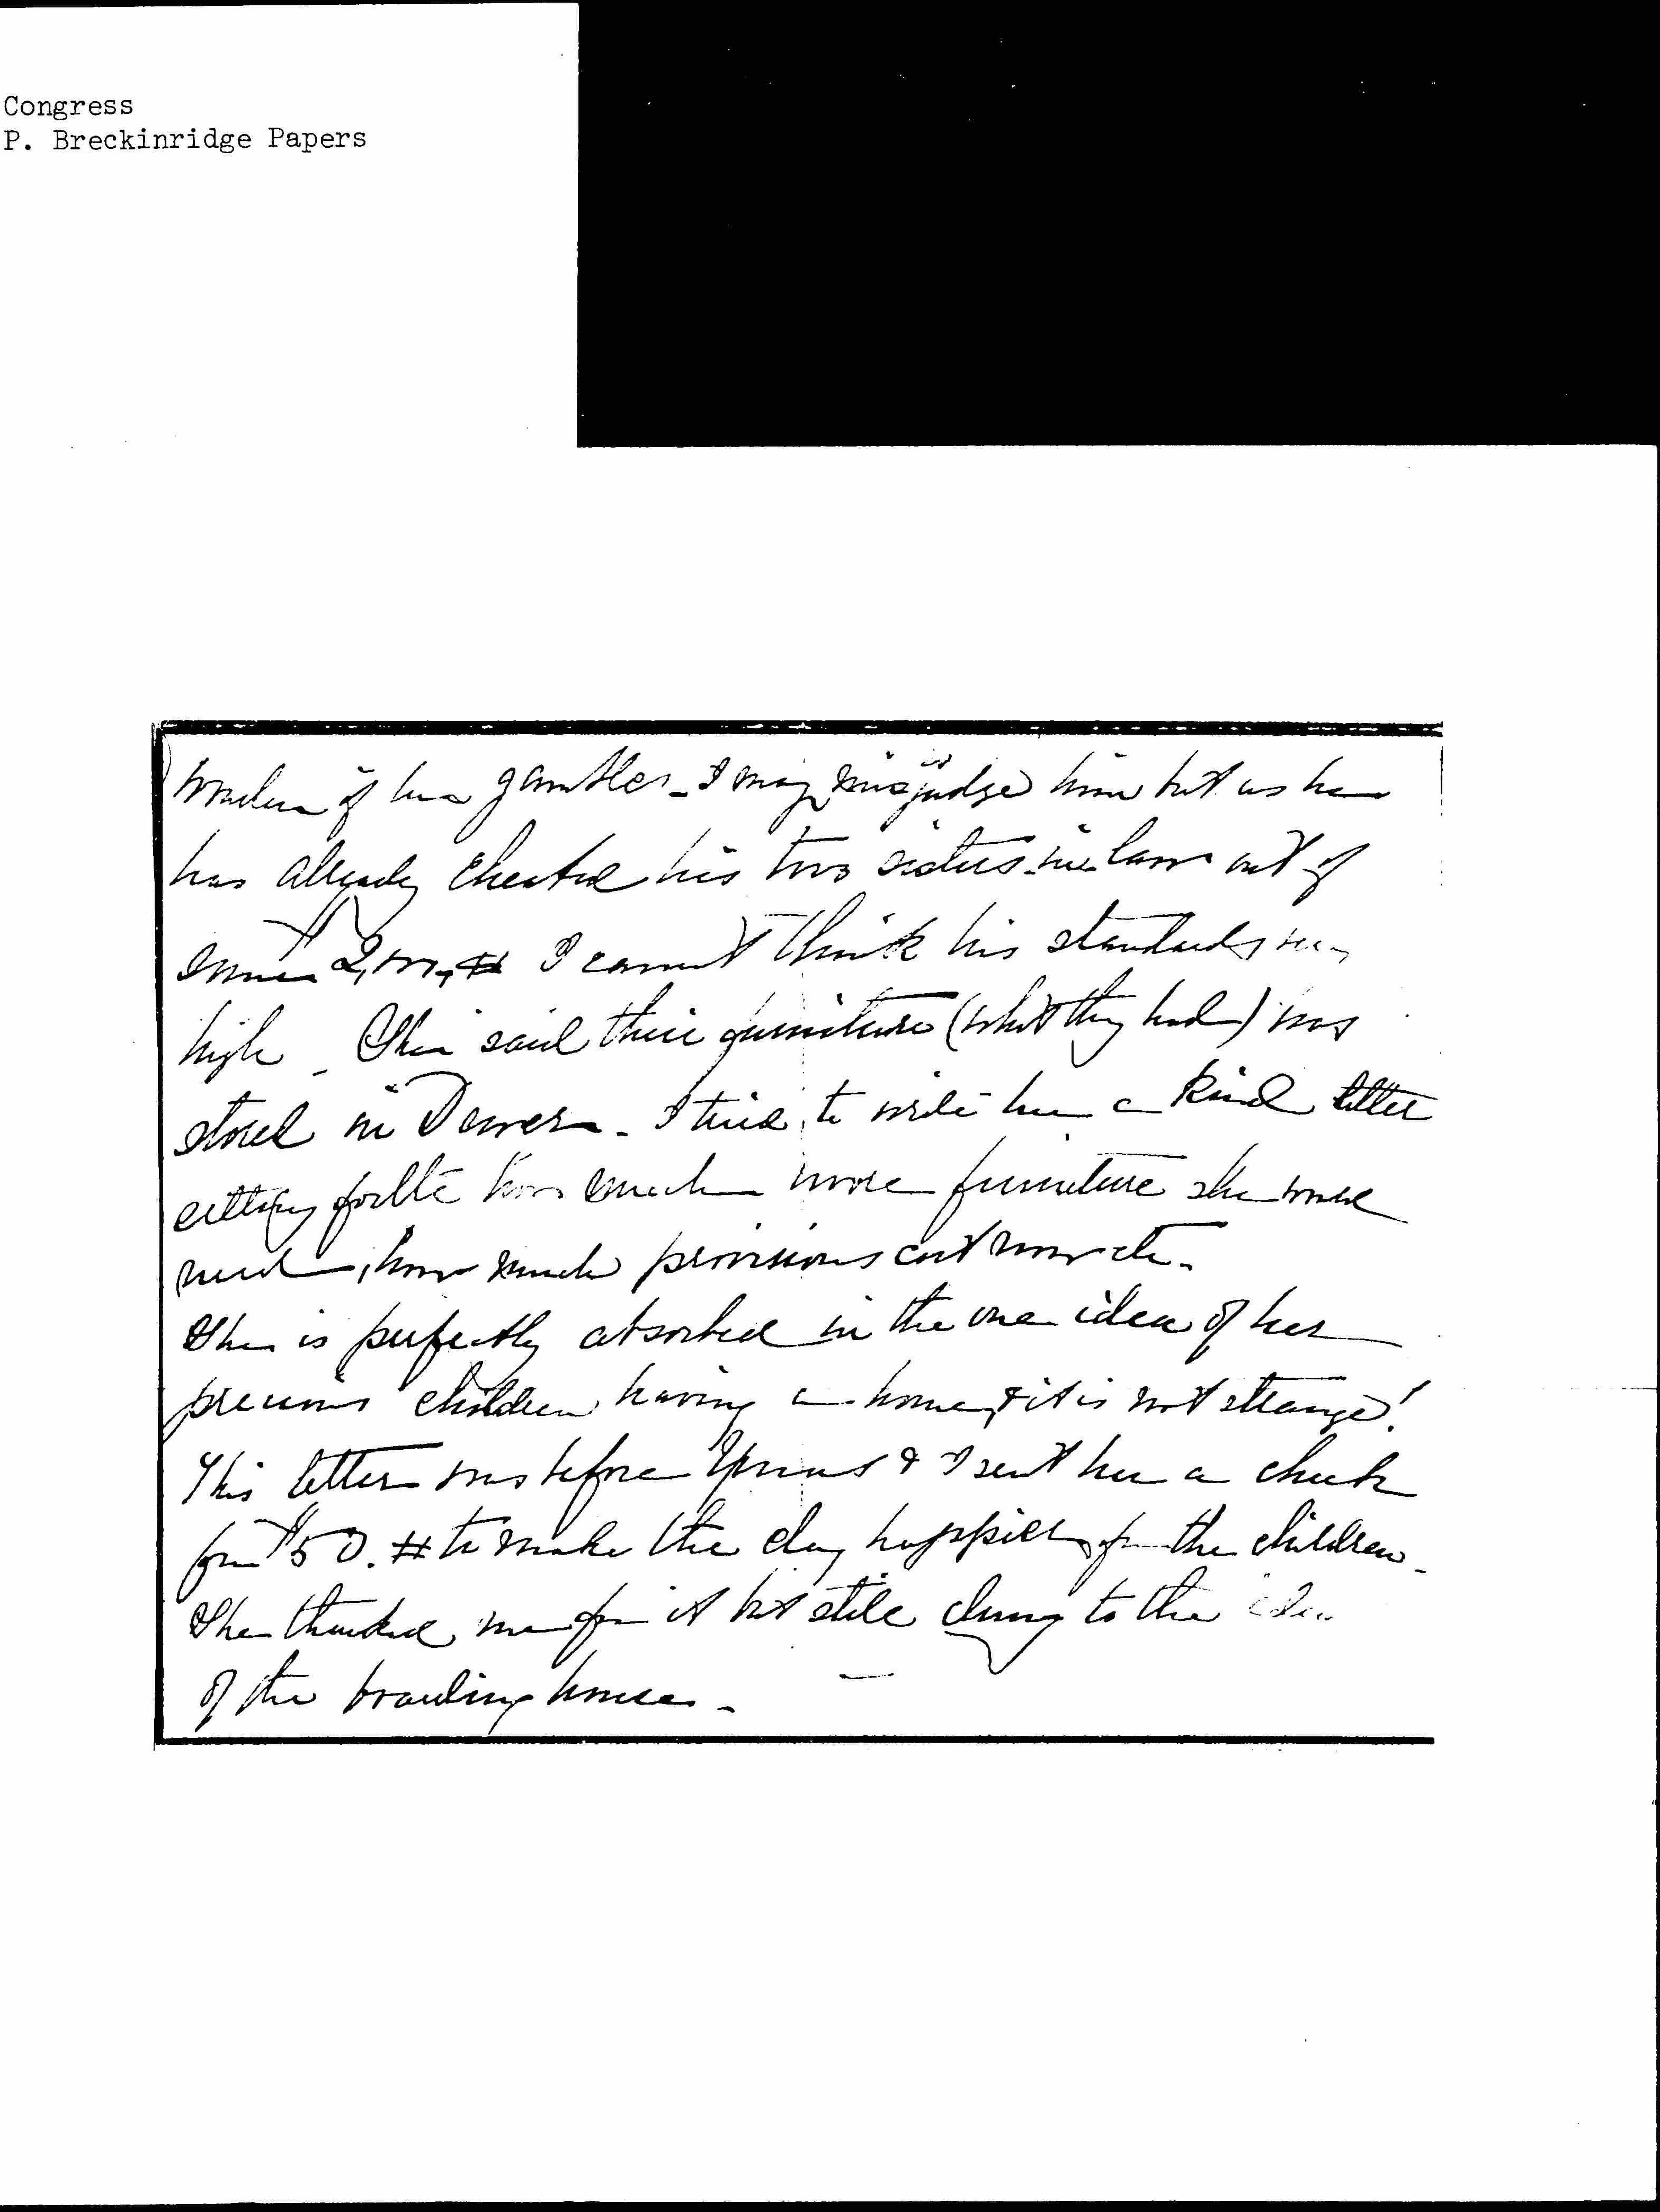 Congress
P. Breckinridge Papers
of her gambler - I may misjudge him but as he
has already cheated his two sisters-in-law out of
some $ I cannot think his standards
high - She said their furniture (what they had) was
stored in Denver - I tried to write her a kind letter
setting forth how much more furniture she would
need, how much provisions cost now etc -
She is perfectly absorbed in the one idea of her
precious children having a home, & it is not strange!
This letter was before Xmas & I sent her a check
for $50. # to make the day happier for the children -
She thanked me for it but still clung to the idea
of the boarding house -